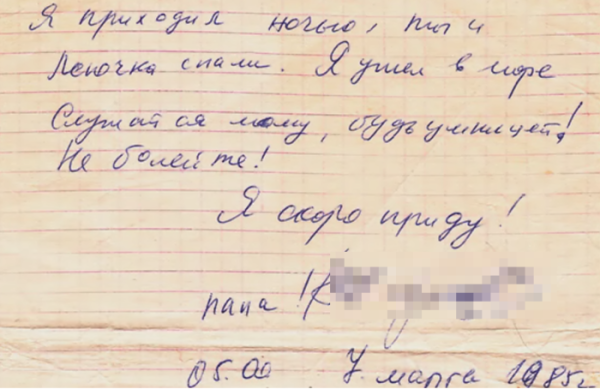 Я приходил ночью, ты и
Леночка спали. Я ушел в море
Слушайся маму, будь умницей!
Не болейте!
Я скоро приду!
папа!
05.00 7. марта 1985г